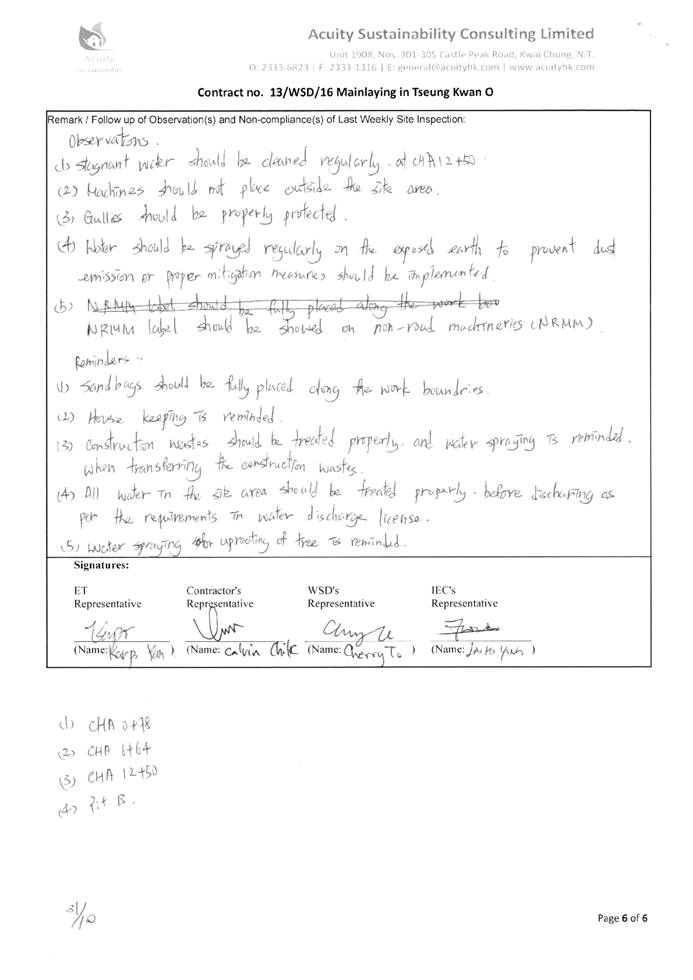 Acuity Sustainability Consulting Limited
Unit 1908, Nos. 301-305 Castle Peak Road, Kwai Chung, N.T.
O: 2333-6823 | F: 2333-1316 | E: general@acuityhk.com | www.acuityhk.com
Acuity
Contract no. 13/WSD/16 Mainlaying in Tseung Kwan O
Remark / Follow up of Observation(s) and Non-compliance(s) of Last Weekly Site Inspection:
Observations.
(1) Stagnant water should be cleaned regularly. at CHA12+50
(2) Machines should not place outside the site area.
(3) Gullies should be properly protected.
(4) Water should be sprayed regularly on the exposed earth to prevent dust
emission or proper mitigation measures should be implemented.
(5) NRMM label should be fully placed along the work bou
NRMM label should be showed on non-road machineries (NRMM)
Reminders :-
(1) Sandbags should be fully placed along the work boundries.
(2) House keeping is reminded.
(3) Construction wastes should be treated properly. and water spraying is reminded.
when transferring the construction wastes.
(4) All water in the site area should be treated properly. before discharing as
per the requirements in water discharge license.
(5) Water spraying for uprooting of tree is reminded.
Signatures:
ET Contractor's WSD's IEC's
Representative Representative Representative Representative
(Name: Yan ) (Name: Calvin ) (Name: Cherry To ) (Name: )
(1) CHA 0+78
(2) CHA 6+64
(3) CHA 12+50
(4) Pit B.
31/10
Page 6 of 6